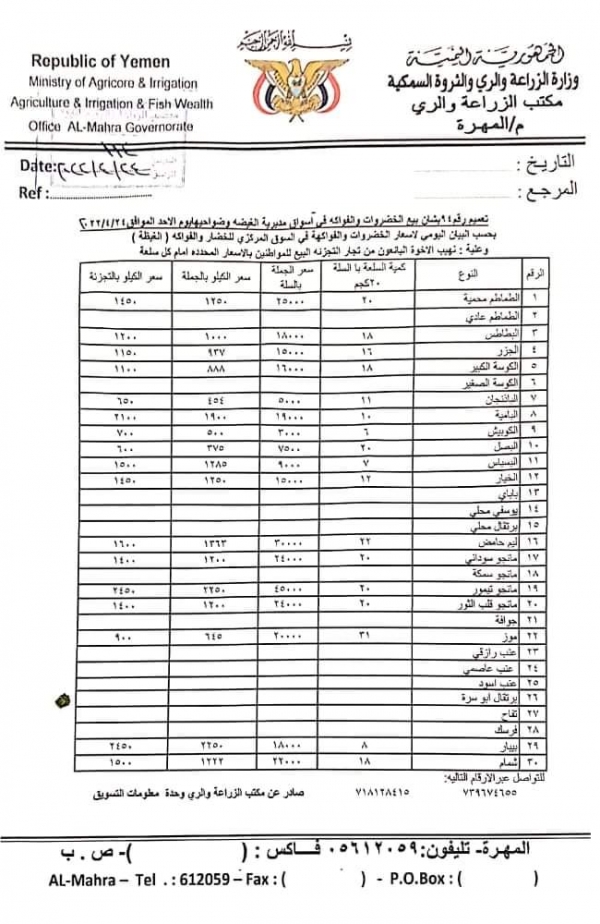 بسم الله الرحمن الرحيم
Republic of Yemen
Ministry of Agricore & Irrigation
Agriculture & Irrigation & Fish Wealth
Office AL-Mahra Governorate
الجمهورية اليمنية
وزارة الزراعة والري والثروة السمكية
مكتب الزراعة والري
م/المهرة
Date: ٢٠٢٢/٤/٢٤
Ref :
التاريخ :
المرجع :
تعميم رقم ٩٤ بشان بيع الخضروات والفواكه في أسواق مديرية الغيضه وضواحيها يوم الاحد الموافق ٢٠٢٢/٤/٢٤
بحسب البيان اليومي لاسعار الخضروات والفواكهة في السوق المركزي للخضار والفواكه ( الغيظة )
وعلية : نهيب الاخوة البائعون من تجار التجزئه البيع للمواطنين بالاسعار المحدده امام كل سلعة
الرقم النوع كمية السلعة با السلة ٢٠كجم سعر الجملة بالسلة سعر الكيلو بالجملة سعر الكيلو بالتجزئة
١ الطماطم محمية ٢٠ ٢٥٠٠٠ ١٢٥٠ ١٤٥٠
٢ الطماطم عادي
٣ البطاطس ١٨ ١٨٠٠٠ ١٠٠٠ ١٢٠٠
٤ الجزر ١٦ ١٥٠٠٠ ٩٣٧ ١١٥٠
٥ الكوسة الكبير ١٨ ١٦٠٠٠ ٨٨٨ ١١٠٠
٦ الكوسة الصغير
٧ الباذنجان ١١ ٥٠٠٠ ٤٥٤ ٦٥٠
٨ البامية ١٠ ١٩٠٠٠ ١٩٠٠ ٢١٠٠
٩ الكوبيش ٦ ٣٠٠٠ ٥٠٠ ٧٠٠
١٠ البصل ٢٠ ٧٥٠٠ ٣٧٥ ٦٠٠
١١ البسباس ٧ ٩٠٠٠ ١٢٨٥ ١٥٠٠
١٢ الخيار ١٢ ١٥٠٠٠ ١٢٥٠ ١٤٥٠
١٣ باباي
١٤ يوسفي محلي
١٥ برتقال محلي
١٦ ليم حامض ٢٢ ٣٠٠٠٠ ١٣٦٣ ١٦٠٠
١٧ مانجو سوداني ٢٠ ٢٤٠٠٠ ١٢٠٠ ١٤٠٠
١٨ مانجو سمكة
١٩ مانجو تيمور ٢٠ ٤٥٠٠٠ ٢٢٥٠ ٢٤٥٠
٢٠ مانجو قلب الثور ٢٠ ٢٤٠٠٠ ١٢٠٠ ١٤٠٠
٢١ جوافة
٢٢ موز ٣١ ٢٠٠٠٠ ٦٤٥ ٩٠٠
٢٣ عنب رازقي
٢٤ عنب عاصمي
٢٥ عنب اسود
٢٦ برتقال ابو سرة
٢٧ تفاح
٢٨ فرسك
٢٩ بيبار ٨ ١٨٠٠٠ ٢٢٥٠ ٢٤٥٠
٣٠ شمام ١٨ ٢٢٠٠٠ ١٢٢٢ ١٥٠٠
للتواصل عبر الارقام التاليه:
٧٣٩٦٧٤٦٥٥ ٧١٨١٢٨٤١٥ صادر عن مكتب الزراعة والري وحدة معلومات التسويق
المهرة- تليفون: ٠٥٦١٢٠٥٩ فــاكس : ( )- ص . ب ( )
AL-Mahra – Tel .: 612059 – Fax : ( ) - P.O.Box : ( )